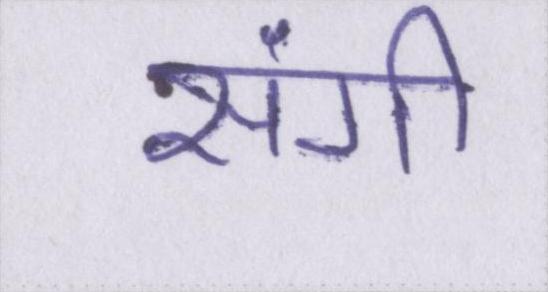 संगी